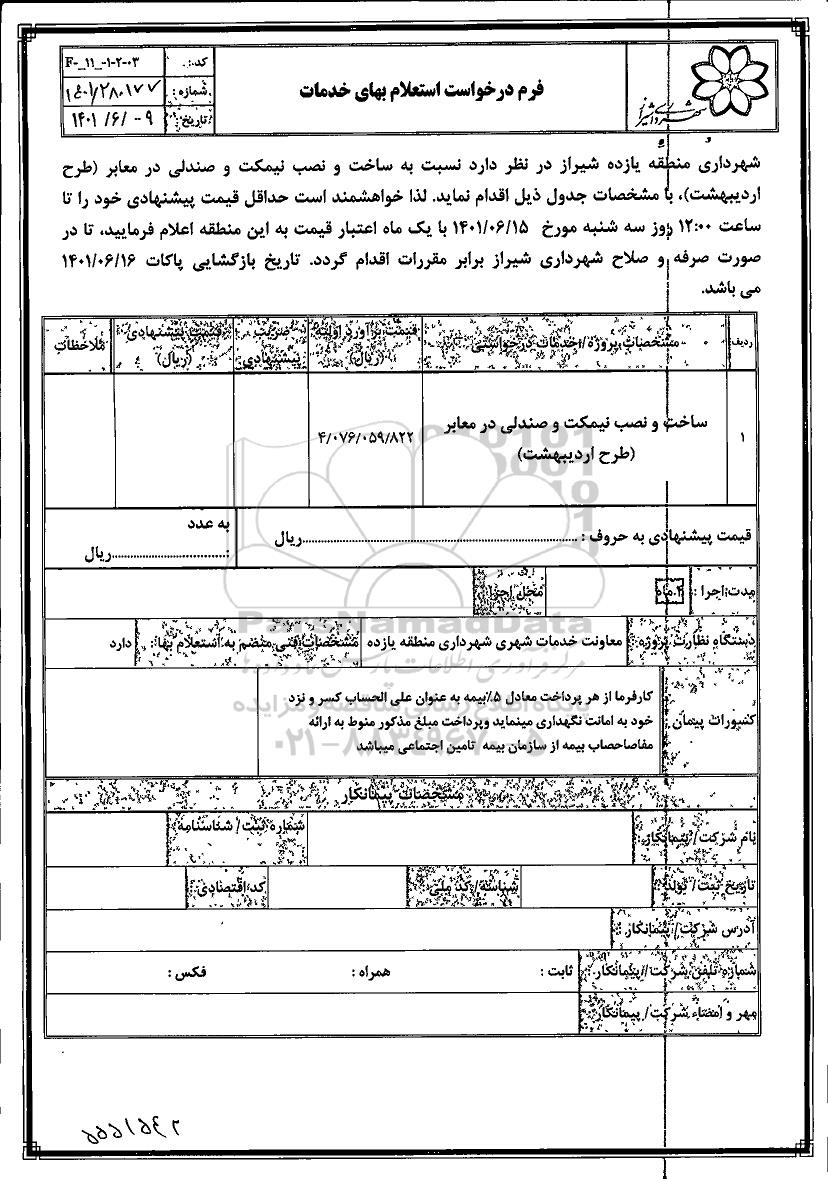 شهرداری شیراز
فرم درخواست استعلام بهای خدمات
کد: F-_۱۱_-۱-۲-۰۳
شماره: ۱۴۰۱/۲۸۰۱۷۷
تاریخ: ۱۴۰۱ /۶/ -۹
شهرداری منطقه یازده شیراز در نظر دارد نسبت به ساخت و نصب نیمکت و صندلی در معابر (طرح
اردیبهشت)، با مشخصات جدول ذیل اقدام نماید. لذا خواهشمند است حداقل قیمت پیشنهادی خود را تا
ساعت ۱۲:۰۰ روز سه شنبه مورخ ۱۴۰۱/۰۶/۱۵ با یک ماه اعتبار قیمت به این منطقه اعلام فرمایید، تا در
صورت صرفه و صلاح شهرداری شیراز برابر مقررات اقدام گردد. تاریخ بازگشایی پاکات ۱۴۰۱/۰۶/۱۶
می باشد.
ردیف مشخصات پروژه/خدمات درخواستی قیمت برآورد اولیه (ریال) ضریب پیشنهادی قیمت پیشنهادی (ریال) ملاحظات
۱ ساخت و نصب نیمکت و صندلی در معابر ۴/۰۷۶/۰۵۹/۸۲۲
(طرح اردیبهشت)
قیمت پیشنهادی به حروف : ........................ریال به عدد
:........................ریال
مدت اجرا : ۲ ماه محل اجرا
دستگاه نظارت پروژه : معاونت خدمات شهری شهرداری منطقه یازده مشخصات فنی منضم به استعلام بها: دارد
کسورات پیمان
کارفرما از هر پرداخت معادل ۵٪بیمه به عنوان علی الحساب کسر و نزد
خود به امانت نگهداری مینماید وپرداخت مبلغ مذکور منوط به ارائه
مفاصاحصاب بیمه از سازمان بیمه تامین اجتماعی میباشد
مشخصات پیمانکار
نام شرکت/ پیمانکار: شماره ثبت/ شناسنامه
تاریخ ثبت/ تولد: شناسه/ کد ملی: کد اقتصادی:
آدرس شرکت/ پیمانکار :
شماره تلفن شرکت/پیمانکار : ثابت : همراه : فکس :
مهر و امضاء شرکت/ پیمانکار:
ParsNamadData
مرکز فرآوری اطلاعات پارس نماد داده ها
پایگاه اطلاع رسانی مناقصه و مزایده
۰۲۱-۸۸۳۴۹۶۷۰-۵